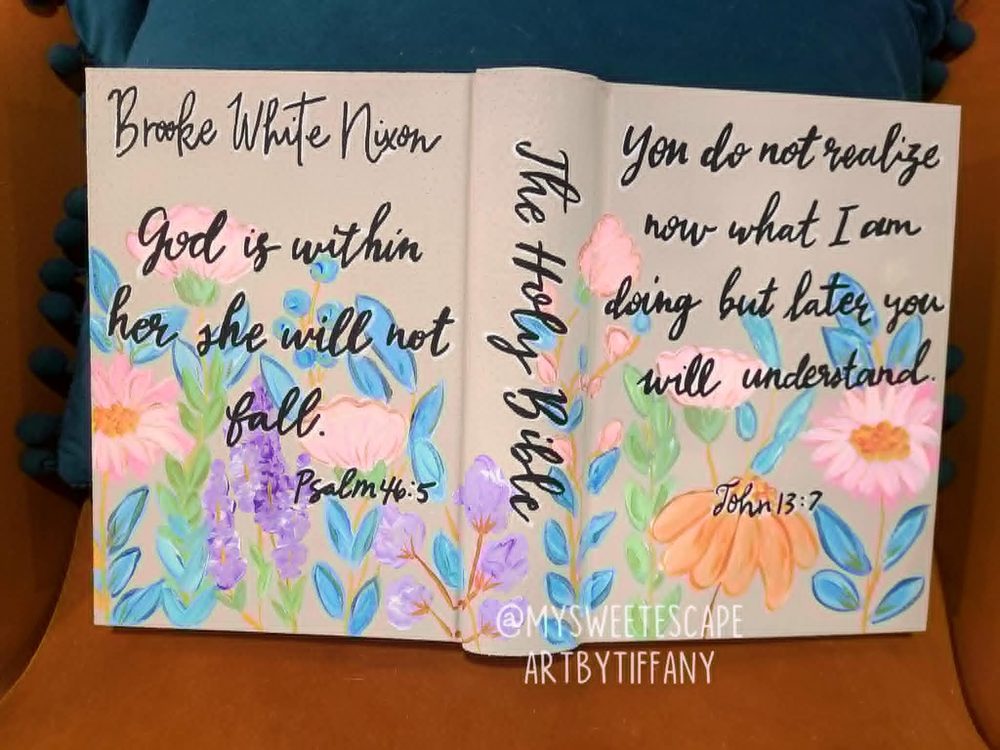 Brooke White Nixon
God is within
her she will not
fall.
Psalm 46:5
The Holy Bible
You do not realize
now what I am
doing but later you
will understand.
John 13:7
@MYSWEETESCAPE
ARTBYTIFFANY